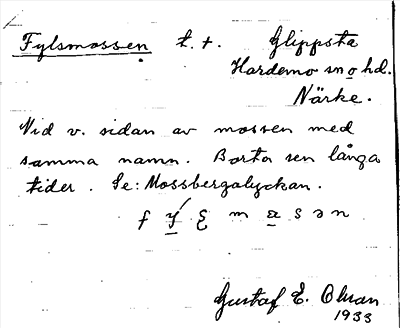 Fylsmossen t. t. Glippsta
Hardemo sn o hd.
Närke.
Vid v. sidan av mossen med
samma namn. Borta sen långa
tider. Se: Mossbergalyckan.
Gustaf E. Olsson
1933